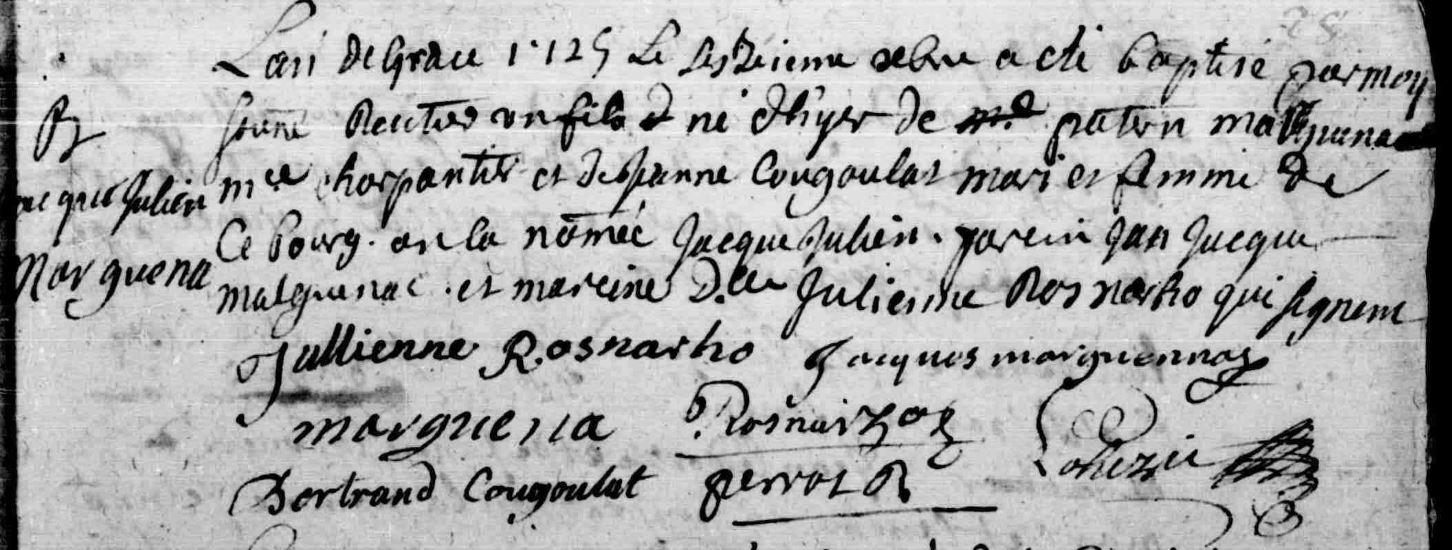 Bt
Jacque Julien
Marguena
L'an de Grace 1725 Le 7bre a eté baptisé par moy
Recteur un fils né d'hyer de patern Malguenac
me charpantier et de Jeanne Cougoulat mari et femme de
Ce bourg. on la nōmé Jacque Julien. parein Jan Jacque
malguenac. et mareine d.lle Julienne Rosnarho qui signent
Jullienne Rosnarho Jacques marguennaz
marguena Rosnarho
Bertrand Cougoulat perrot